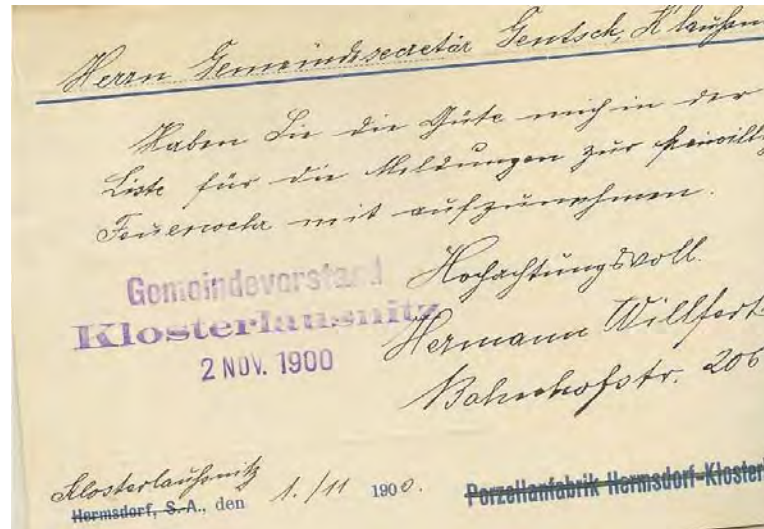 Herrn Gemeindesecretär Gentsch, Klaußn
Haben Sie die Güte mich in der
Liste für die Meldungen zur freiwillg
Feuerwehr mit aufzunehmen.
Hochachtungsvoll.
Hermann Willfert
Bahnhofstr. 206
Gemeindevorstand
Klosterlausnitz
2 NOV. 1900
Klosterlaußnitz
Hermsdorf, S.-A., den 1./11 1900.
Porzellanfabrik Hermsdorf-Klosterl